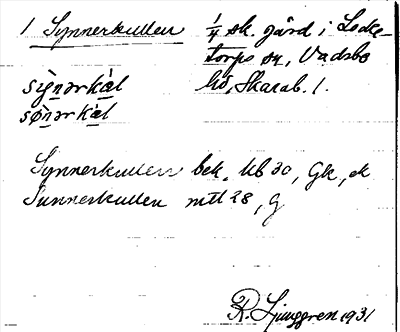 1 Synnerkullen 1/4 sk. gård i Locke-
torps sn, Vadsbo
hd, Skarab. l.
sìg̲nərkàl
sø̀n̲ərkàl
Synnerkullen bek. Ub 30, Gk, ek
Sunnerkullen mtl 28, G
R. Ljunggren 1931